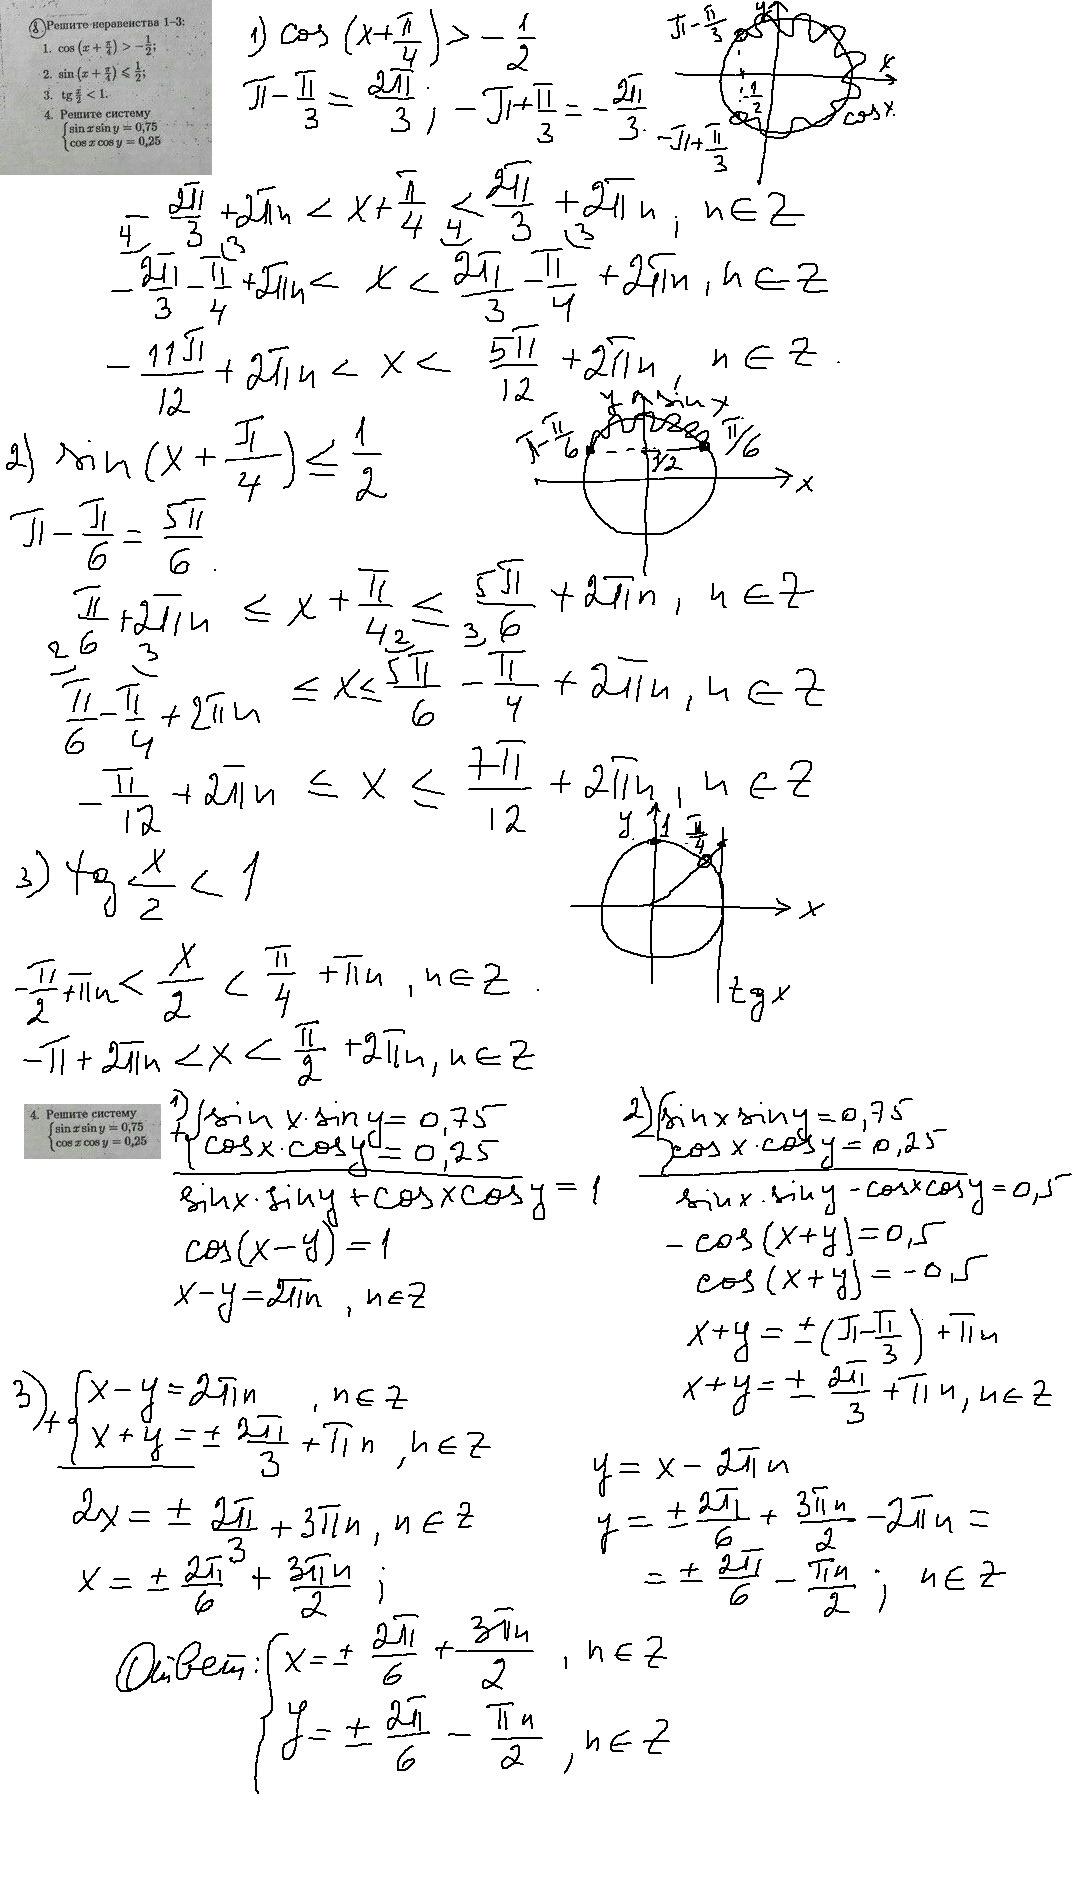 8 Решите неравенства 1–3:
1. cos (x + π/4) > −1/2;
2. sin (x + π/4) ⩽ 1/2;
3. tg x/2 < 1.
4. Решите систему
{ sin x sin y = 0,75
cos x cos y = 0,25
1) cos (x + π/4) > − 1/2
π − π/3 = 2π/3 ; − π + π/3 = − 2π/3.
π − π/3
y
x
− 1/2
cos x.
−π + π/3
− 2π/3 + 2πn < x + π/4 < 2π/3 + 2πn, n ∈ Z
4 3 4 3
− 2π/3 − π/4 + 2πn < x < 2π/3 − π/4 + 2πn, n ∈ Z
− 11π/12 + 2πn < x < 5π/12 + 2πn, n ∈ Z.
2) sin (x + π/4) ≤ 1/2
y sin x
π − π/6
π/6
1/2
x
π − π/6 = 5π/6.
π/6 + 2πn ≤ x + π/4 ≤ 5π/6 + 2πn, n ∈ Z
2 3 2 3
π/6 − π/4 + 2πn ≤ x ≤ 5π/6 − π/4 + 2πn, n ∈ Z
− π/12 + 2πn ≤ x ≤ 7π/12 + 2πn, n ∈ Z
3) tg x/2 < 1
y 1 π/4
x
tg x
− π/2 + πn < x/2 < π/4 + πn, n ∈ Z.
−π + 2πn < x < π/2 + 2πn, n ∈ Z
4. Решите систему
{ sin x sin y = 0,75
cos x cos y = 0,25
1) { sin x · sin y = 0,75
+ cos x · cos y = 0,25
sin x · sin y + cos x cos y = 1
cos (x − y) = 1
x − y = 2πn, n ∈ Z
2) { sin x sin y = 0,75
cos x · cos y = 0,25
sin x · sin y − cos x cos y = 0,5
− cos (x + y) = 0,5
cos (x + y) = −0,5
x + y = ± (π − π/3) + πn
x + y = ± 2π/3 + πn, n ∈ Z
3) { x − y = 2πn, n ∈ Z
+ x + y = ± 2π/3 + πn, n ∈ Z
2x = ± 2π/3 + 3πn, n ∈ Z
x = ± 2π/6 + 3πn/2 ;
y = x − 2πn
y = ± 2π/6 + 3πn/2 − 2πn =
= ± 2π/6 − πn/2 ; n ∈ Z
Ответ: { x = ± 2π/6 + 3πn/2, n ∈ Z
y = ± 2π/6 − πn/2, n ∈ Z